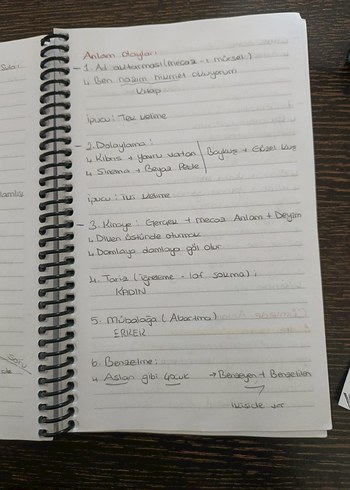 Anlam Olayları
1. Ad aktarması (mecaz-ı mürsel)
↳ Ben Nazım Hikmet okuyorum
Kitap
ipucu: Tek kelime
2. Dolaylama:
↳ Kıbrıs → Yavru Vatan / Baykuş → Güzel Kuş
↳ Sinema → Beyaz Perde
ipucu: İki kelime
3. Kinaye: Gerçek + mecaz Anlam + Deyim
↳ Diken üstünde oturmak
↳ Damlaya damlaya göl olur
4. Tariz (iğneleme - laf sokma)
KADIN
5. Mübalağa (Abartma)
ERKEK
6. Benzetme:
↳ Aslan gibi çocuk → Benzeyen + Benzetilen
ikiside var